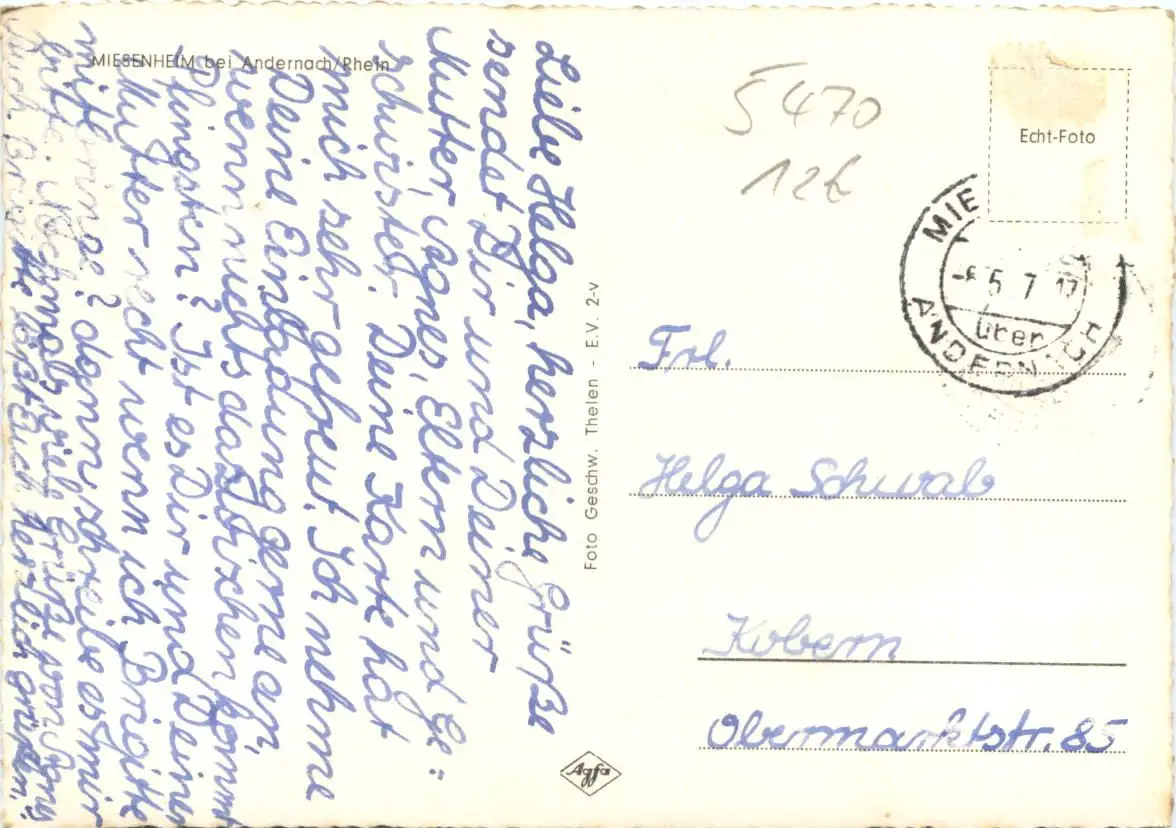 MIESENHEIM bei Andernach/Rhein
Liebe Helga, herzliche Grüße
sendet Dir und Deiner
Mutter, Agnes, Eltern und Ge=
schwister. Deine Karte hat
mich sehr gefreut. Ich nehme
Deine Einladung gerne an,
wenn nichts dazwischen kommt
Pfingsten? Ist es Dir und Deiner
Mutter recht wenn ich Brigitte
mitbringe? dann schreibe es mir
bitte. Nochmals viele Grüße von
läßt Euch herzlich grüßen.
Foto Geschw. Thelen - E.V. 2-v
Agfa
5470
12€
Echt-Foto
MIE
5. 7 17
über
ANDERNACH
Frl.
Helga Schwab
Kobern
Obermarktstr. 85